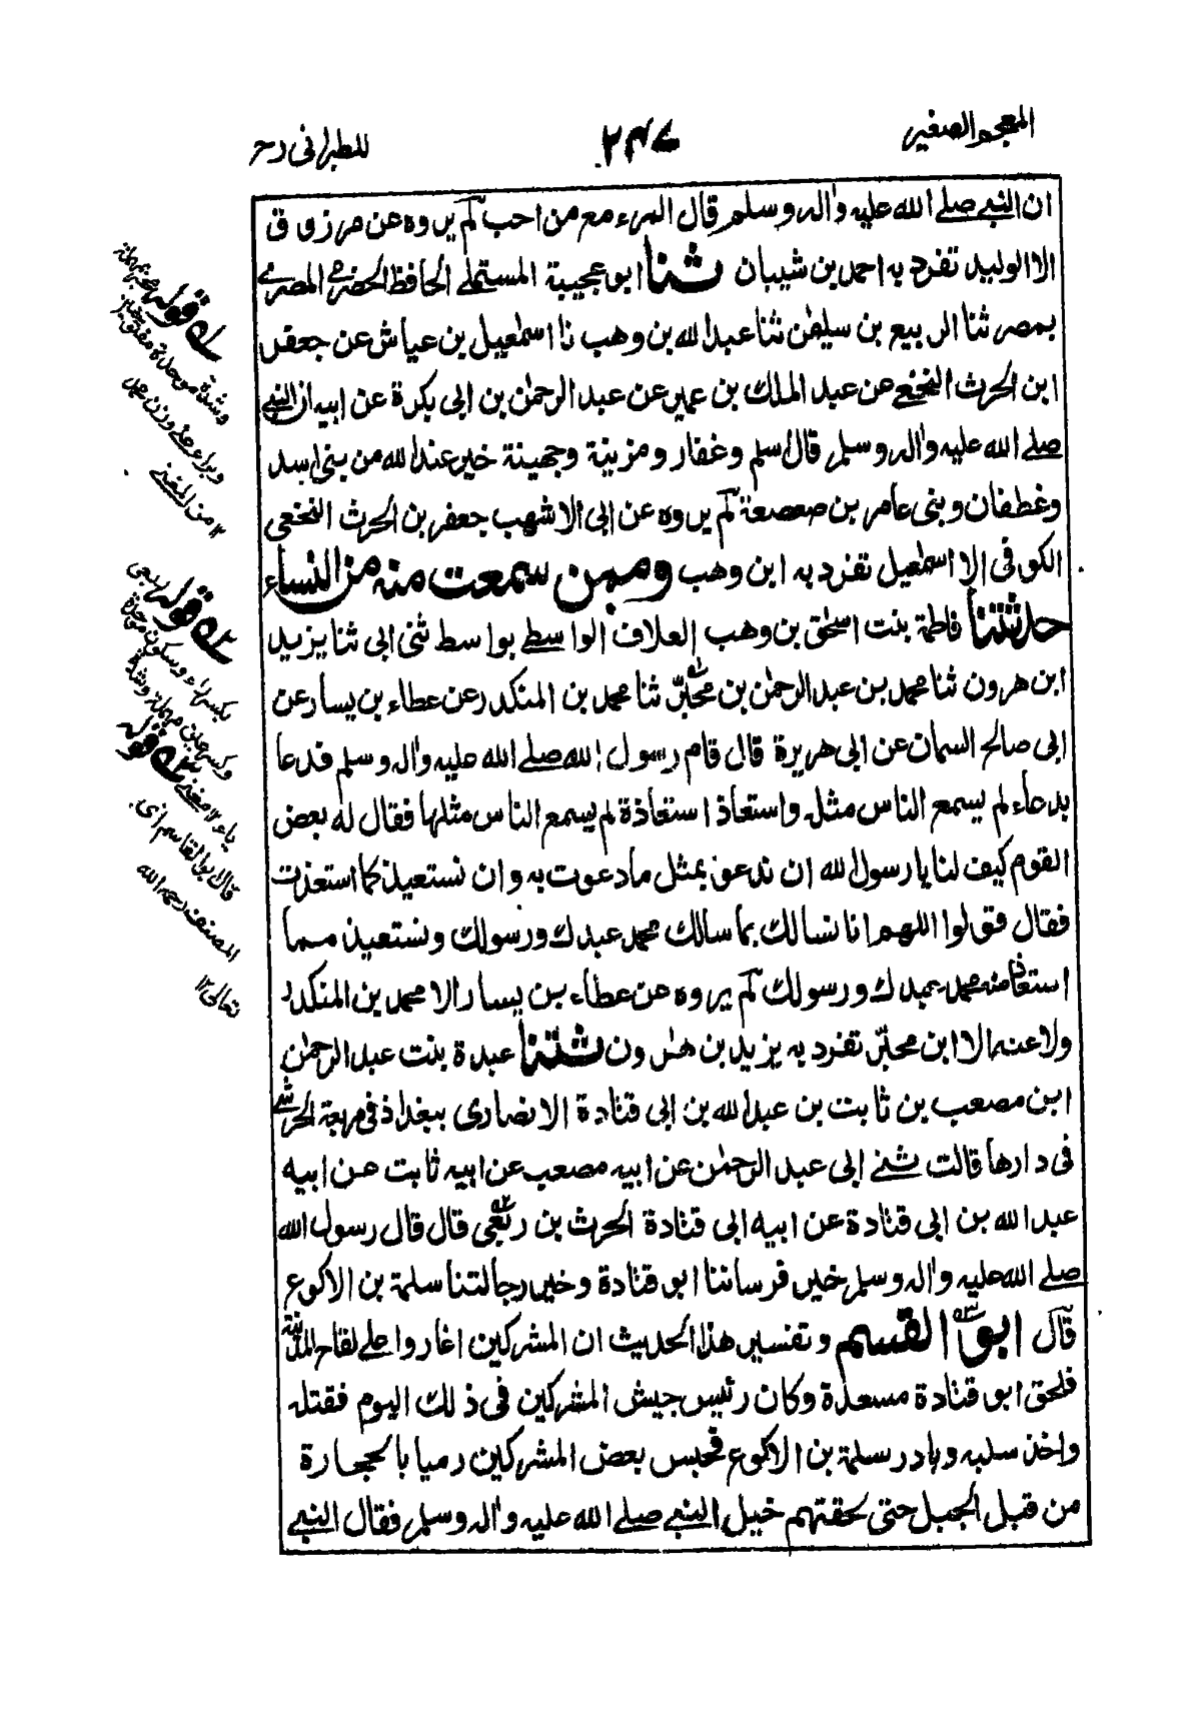 المعجم الصغير
۲۴۷
للطبرانی رح
ان النبی صلے الله علیه واله وسلم قال المرء مع من احب لم یروه عن مرزوق
الا الولید تفرد به احمد بن شیبان ثنا ابو عجیبة المستملے الحافظ الحضرمے المصرے
بمصر ثنا الربیع بن سلیمٰن ثنا عبد الله بن وهب نا اسمٰعیل بن عیاش عن جعفر
ابن الحرث النخعے عن عبد الملك بن عمیر عن عبد الرحمٰن بن ابی بکرة عن ابیه ان النبی
صلے الله علیه واله وسلم قال اسلم وغفار ومزینة وجهینة خیر عند الله من بنی اسد
وغطفان وبنی عامر بن صعصعة لم یروه عن ابی الاشهب جعفر بن الحرث النخعی
الکوفی الا اسمٰعیل تفرد به ابن وهب وممن سمعت منه من النساء
حدثتنا فاطمة بنت اسحٰق بن وهب العلاف الواسطے بواسط ثنی ابی ثنا یزید
ابن هرون ثنا محمد بن عبد الرحمٰن بن محبّر ثنا محمد بن المنکدر عن عطاء بن یسار عن
ابی صالح السمان عن ابی هریرة قال قام رسول الله صلے الله علیه واله وسلم فدعا
بدعاء لم یسمع الناس مثله واستعاذ استعاذة لم یسمع الناس مثلها فقال له بعض
القوم کیف لنا یا رسول الله ان ندعو بمثل ما دعوت به وان نستعیذ کما استعذت
فقال قولوا اللهم انا نسالك بما سالك محمد عبدك ورسولك ونستعیذ مما
استعاذ منه محمد عبدك ورسولك لم یروه عن عطاء بن یسار الا محمد بن المنکدر
ولا عنه الا ابن محبّر تفرد به یزید بن هٰرون ثتنا عبدة بنت عبد الرحمٰن
ابن مصعب بن ثابت بن عبد الله بن ابی قتادة الانصاری ببغداذ فی مربعة الحرشے
فی دارها قالت ثنے ابی عبد الرحمٰن عن ابیه مصعب عن ابیه ثابت عن ابیه
عبد الله بن ابی قتادة عن ابیه ابی قتادة الحرث بن ربعی قال قال رسول الله
صلے الله علیه واله وسلم خیر فرساننا ابو قتادة وخیر رجالتنا سلمة بن الاکوع
قال ابو القسم وتفسیر هذا الحدیث ان المشرکین اغاروا علے لقاح المدینة
فلحق ابو قتادة مسعدة وکان رئیس جیش المشرکین فی ذلك الیوم فقتله
واخذ سلبه وبادر سلمة بن الاکوع فحبس بعض المشرکین رمیا بالحجارة
من قبل الجبل حتی لحقتهم خیل النبی صلے الله علیه واله وسلم فقال النبی
له قوله
وشدة موحدة
وبراء علے وزن محمد
۱۲ من المغنے
۲ه قوله ربعی
بکسر راء وسکون موحدة
وکسر عین مهملة وشدة
یاء ۱۲ مغنے ۳ه قوله
قال ابو القاسم ای
المصنف رحمه الله
تعالی ۱۲